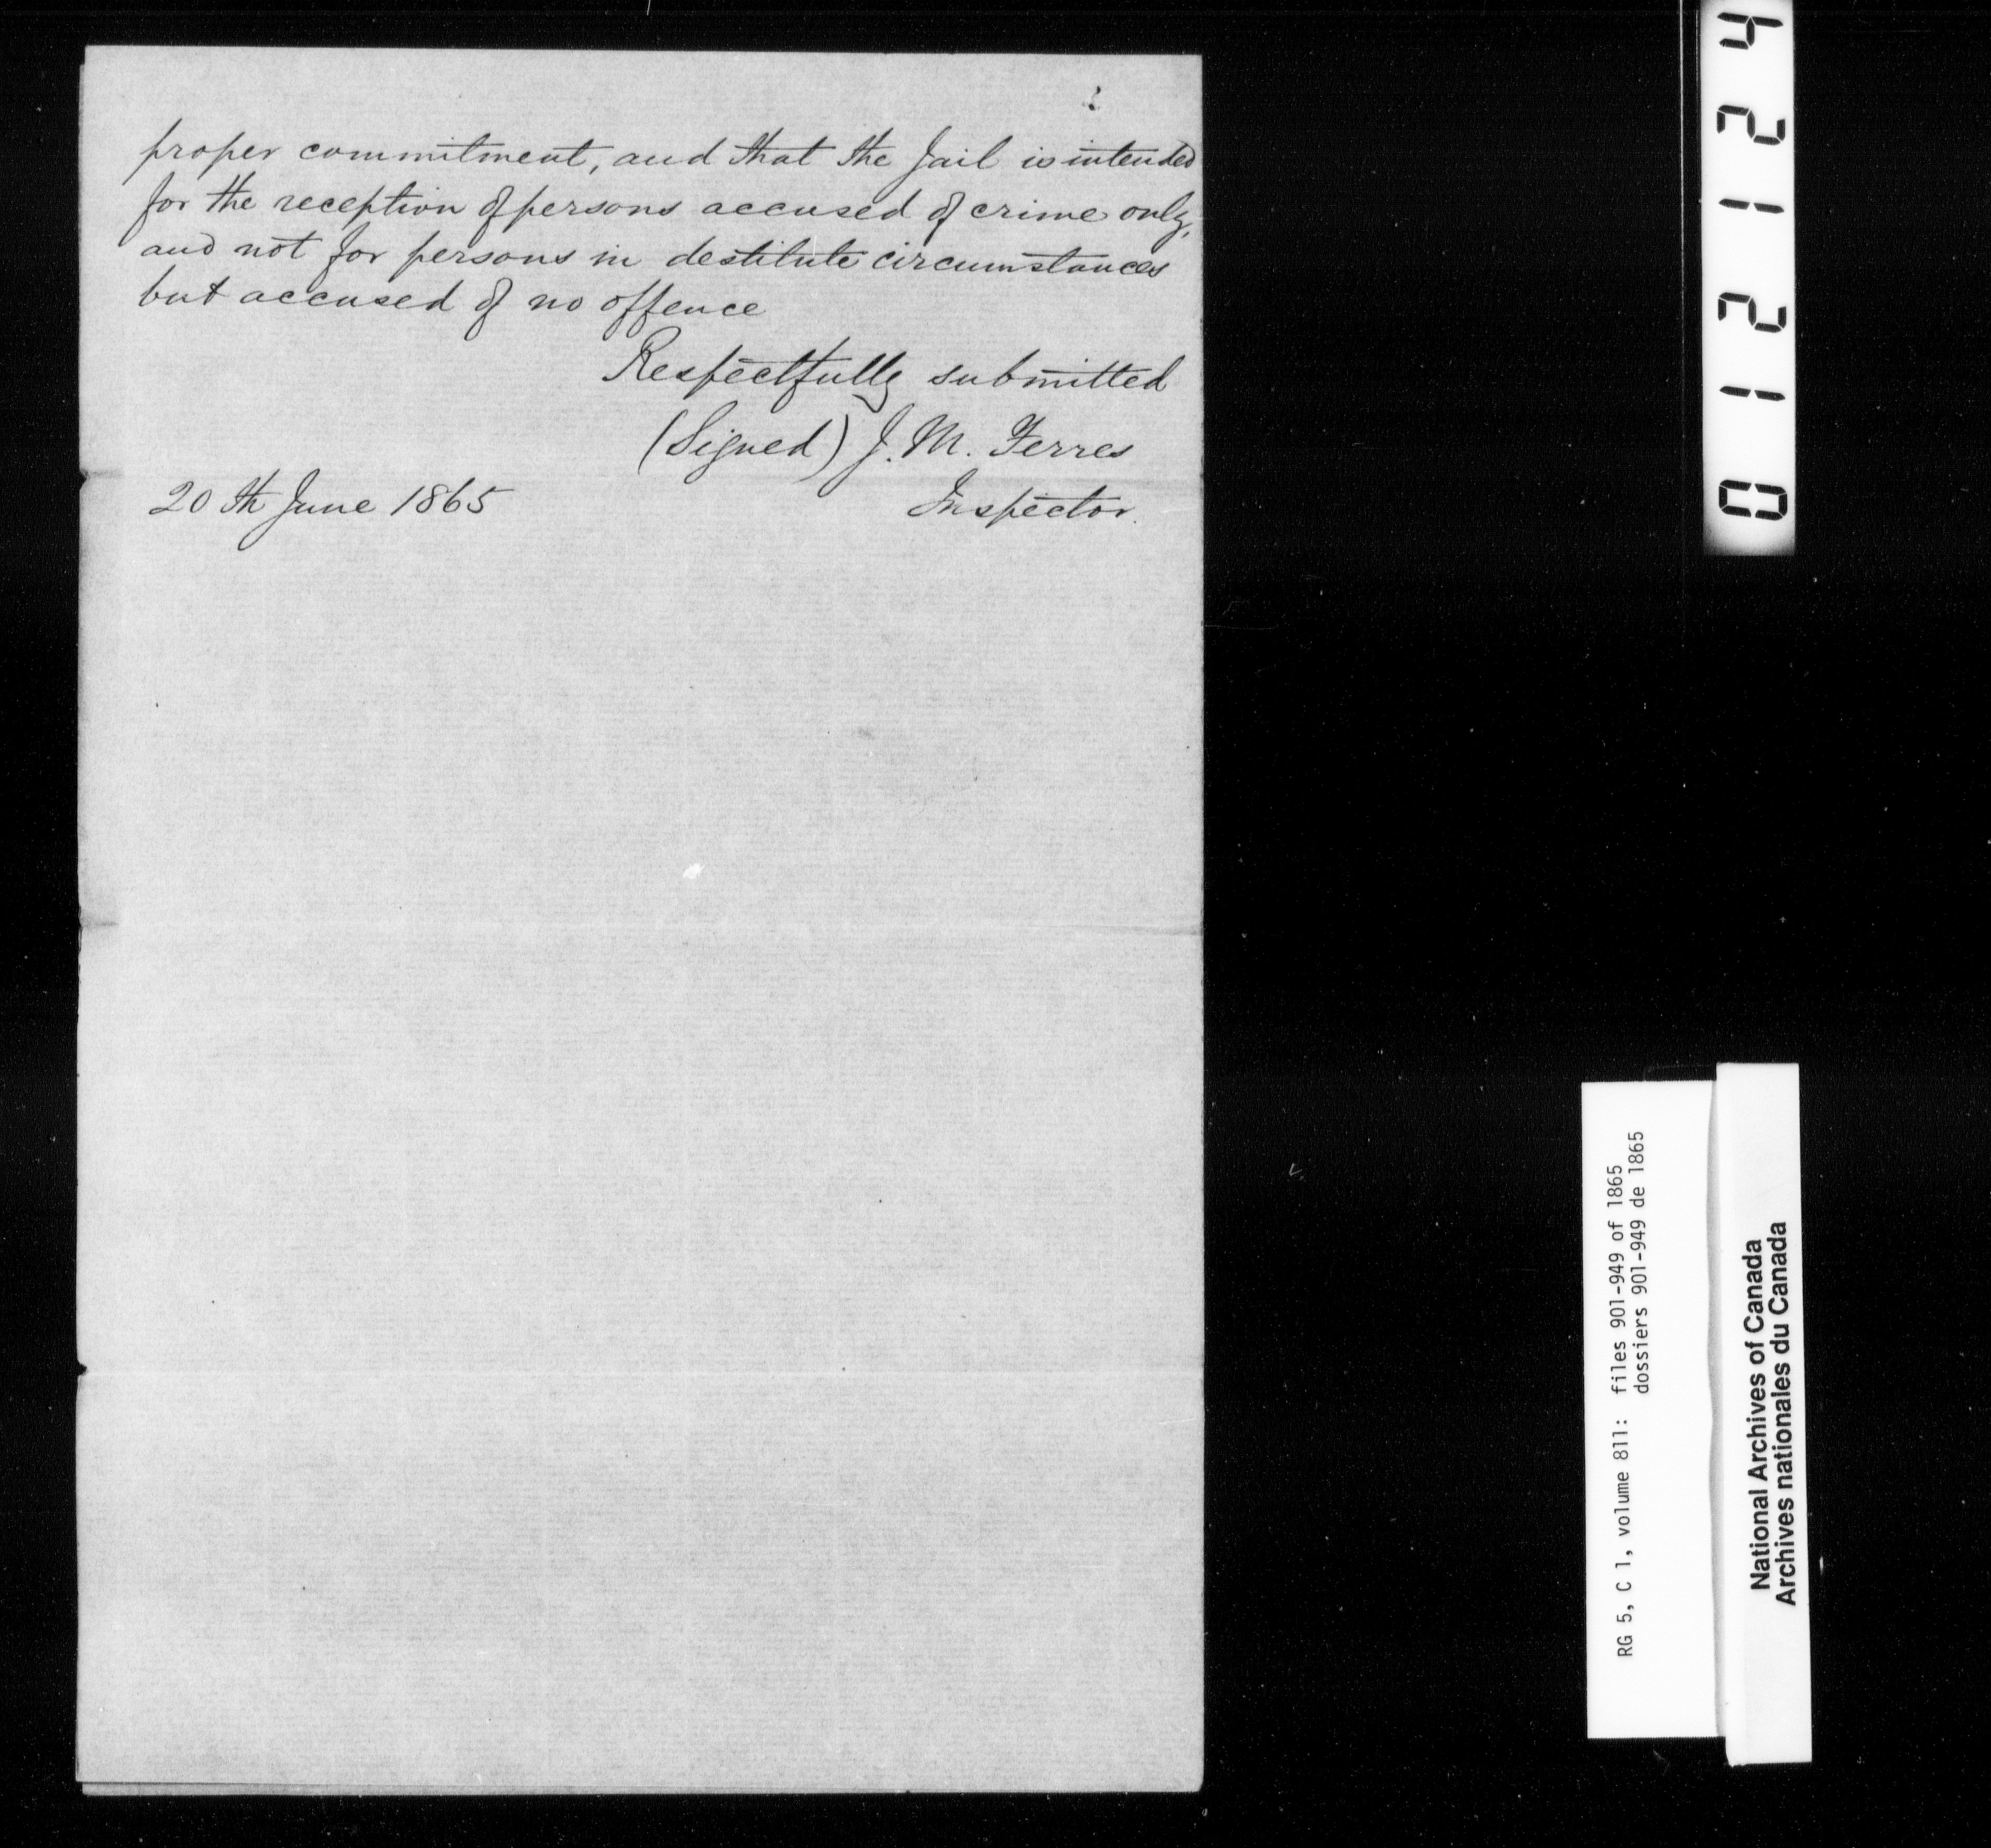 proper commitment, and that the Jail is intended
for the reception of persons accused of crime only,
and not for persons in destitute circumstances
but accused of no offence
Respectfully submitted
(Signed) J. M. Ferres
20th June 1865 Inspector.
012124
RG 5, C 1, volume 811: files 901-949 of 1865
dossiers 901-949 de 1865
National Archives of Canada
Archives nationales du Canada